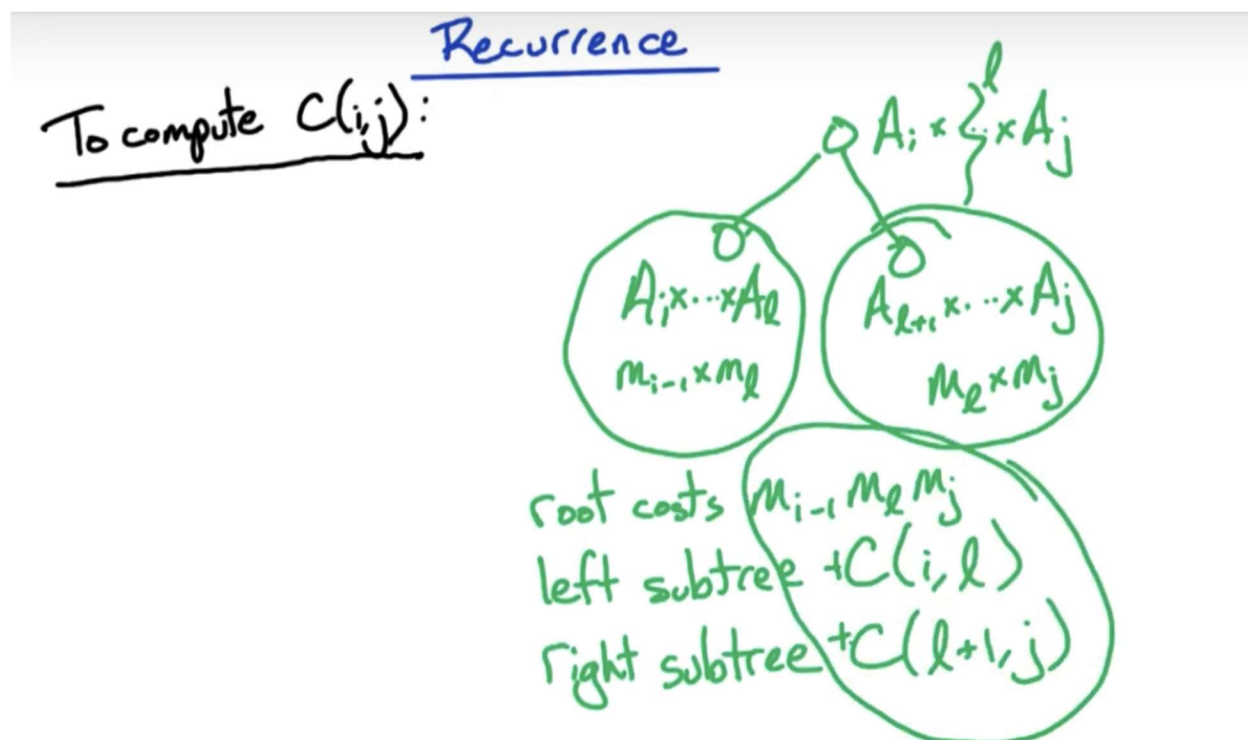 Recurrence
To compute C(i,j):
l
A_i × ... × A_j
A_i × ... × A_l
m_{i-1} × m_l
A_{l+1} × ... × A_j
m_l × m_j
root costs m_{i-1} m_l m_j
left subtree +C(i, l)
right subtree +C(l+1, j)